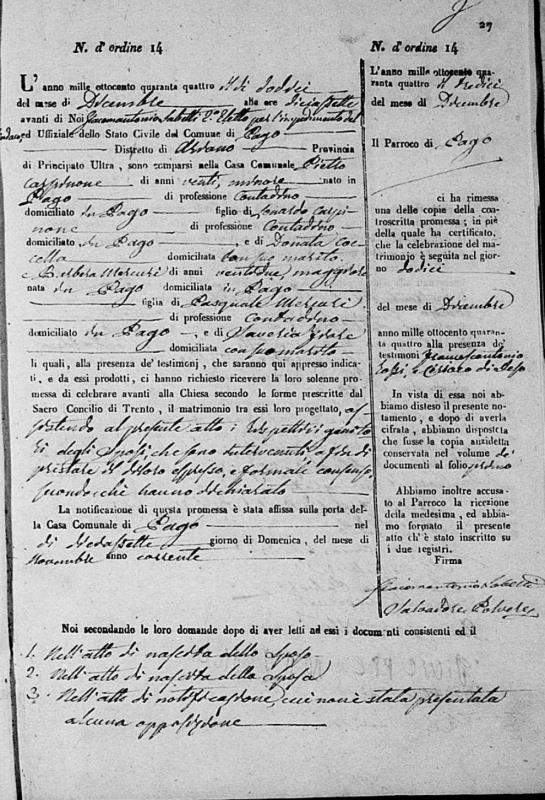 27
N. d'ordine 14
L'anno mille ottocento quaranta quattro il dì dodici
del mese di Dicembre alle ore diciassette
avanti di Noi Giovannantonio Iabelli 2° Eletto per l'impedimento del
Sindaco, ed Uffiziale dello Stato Civile del Comune di Pago
Distretto di Ariano Provincia
di Principato Ultra, sono comparsi nella Casa Comunale Pietro
Carpinone di anni venti, minore nato in
Pago di professione Contadino
domiciliato in Pago figlio di Leonardo Carpi
none di professione Contadino
domiciliato in Pago, e di Donata Coc
cella domiciliata con suo marito
e Barbera Mercuri di anni ventidue maggiore
nata in Pago domiciliata in Pago
figlia di Pasquale Mercuri
di professione contadino
domiciliato in Pago, e di Saveria
domiciliata con suo marito
li quali, alla presenza de' testimonj, che saranno qui appresso indica-
ti, e da essi prodotti, ci hanno richiesto ricevere la loro solenne pro-
messa di celebrare avanti alla Chiesa secondo le forme prescritte dal
Sacro Concilio di Trento, il matrimonio tra essi loro progettato, as
sistendo al presente atto i rispettivi genito
ri degli Sposi, che sono intervenuti a fine di
prestare il di loro espresso, e formale consenso,
secondo che hanno dichiarato
La notificazione di questa promessa è stata affissa sulla porta del-
la Casa Comunale di Pago nel
dì diciassette giorno di Domenica, del mese di
Novembre anno corrente
N. d'ordine 14
L'anno mille ottocento qua-
ranta quattro il tredici
del mese di Dicembre
Il Parroco di Pago
ci ha rimessa
una delle copie della con-
troscritta promessa; in piè
della quale ha certificato,
che la celebrazione del ma-
trimonio è seguita nel gior-
no dodici
del mese di Dicembre
anno mille ottocento quaran-
ta quattro alla presenza de'
testimonj Francescantonio
e Cesare
In vista di essa noi ab-
biamo disteso il presente no-
tamento, e dopo di averla
cifrata, abbiamo disposta
che fusse la copia anzidetta
conservata nel volume de'
documenti al folio primo
Abbiamo inoltre accusa-
to al Parroco la ricezione
della medesima, ed abbia-
mo formato il presente
atto ch'è stato inscritto su
i due registri.
Firma
Giovannantonio Iabelli
Salvadore Polvere
Noi secondando le loro domande dopo di aver letti ad essi i documenti consistenti ed il
1. Nell'atto di nascita dello sposo
2. Nell'atto di nascita della sposa
3. Nell'atto di notificazione, cui non è stata presentata
alcuna opposizione